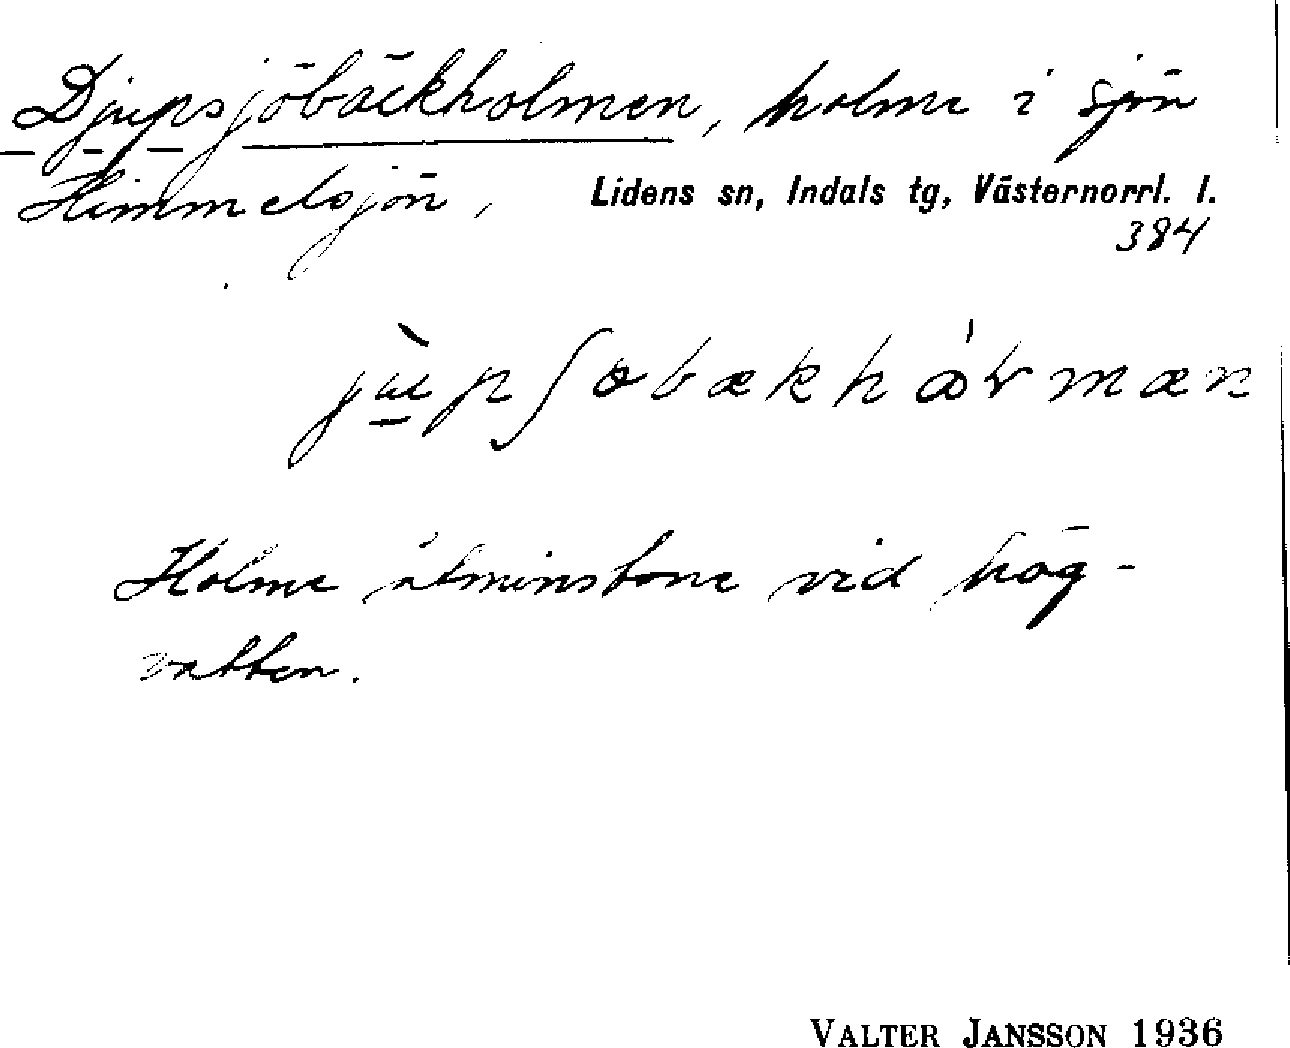 Djupsjöbäckholmen, holme i sjön
Himmelsjön, Lidens sn, Indals tg, Västernorrl. l.
384
jùpʃobækhåvmæn
Holme åtminstone vid hög-
vatten.
VALTER JANSSON 1936